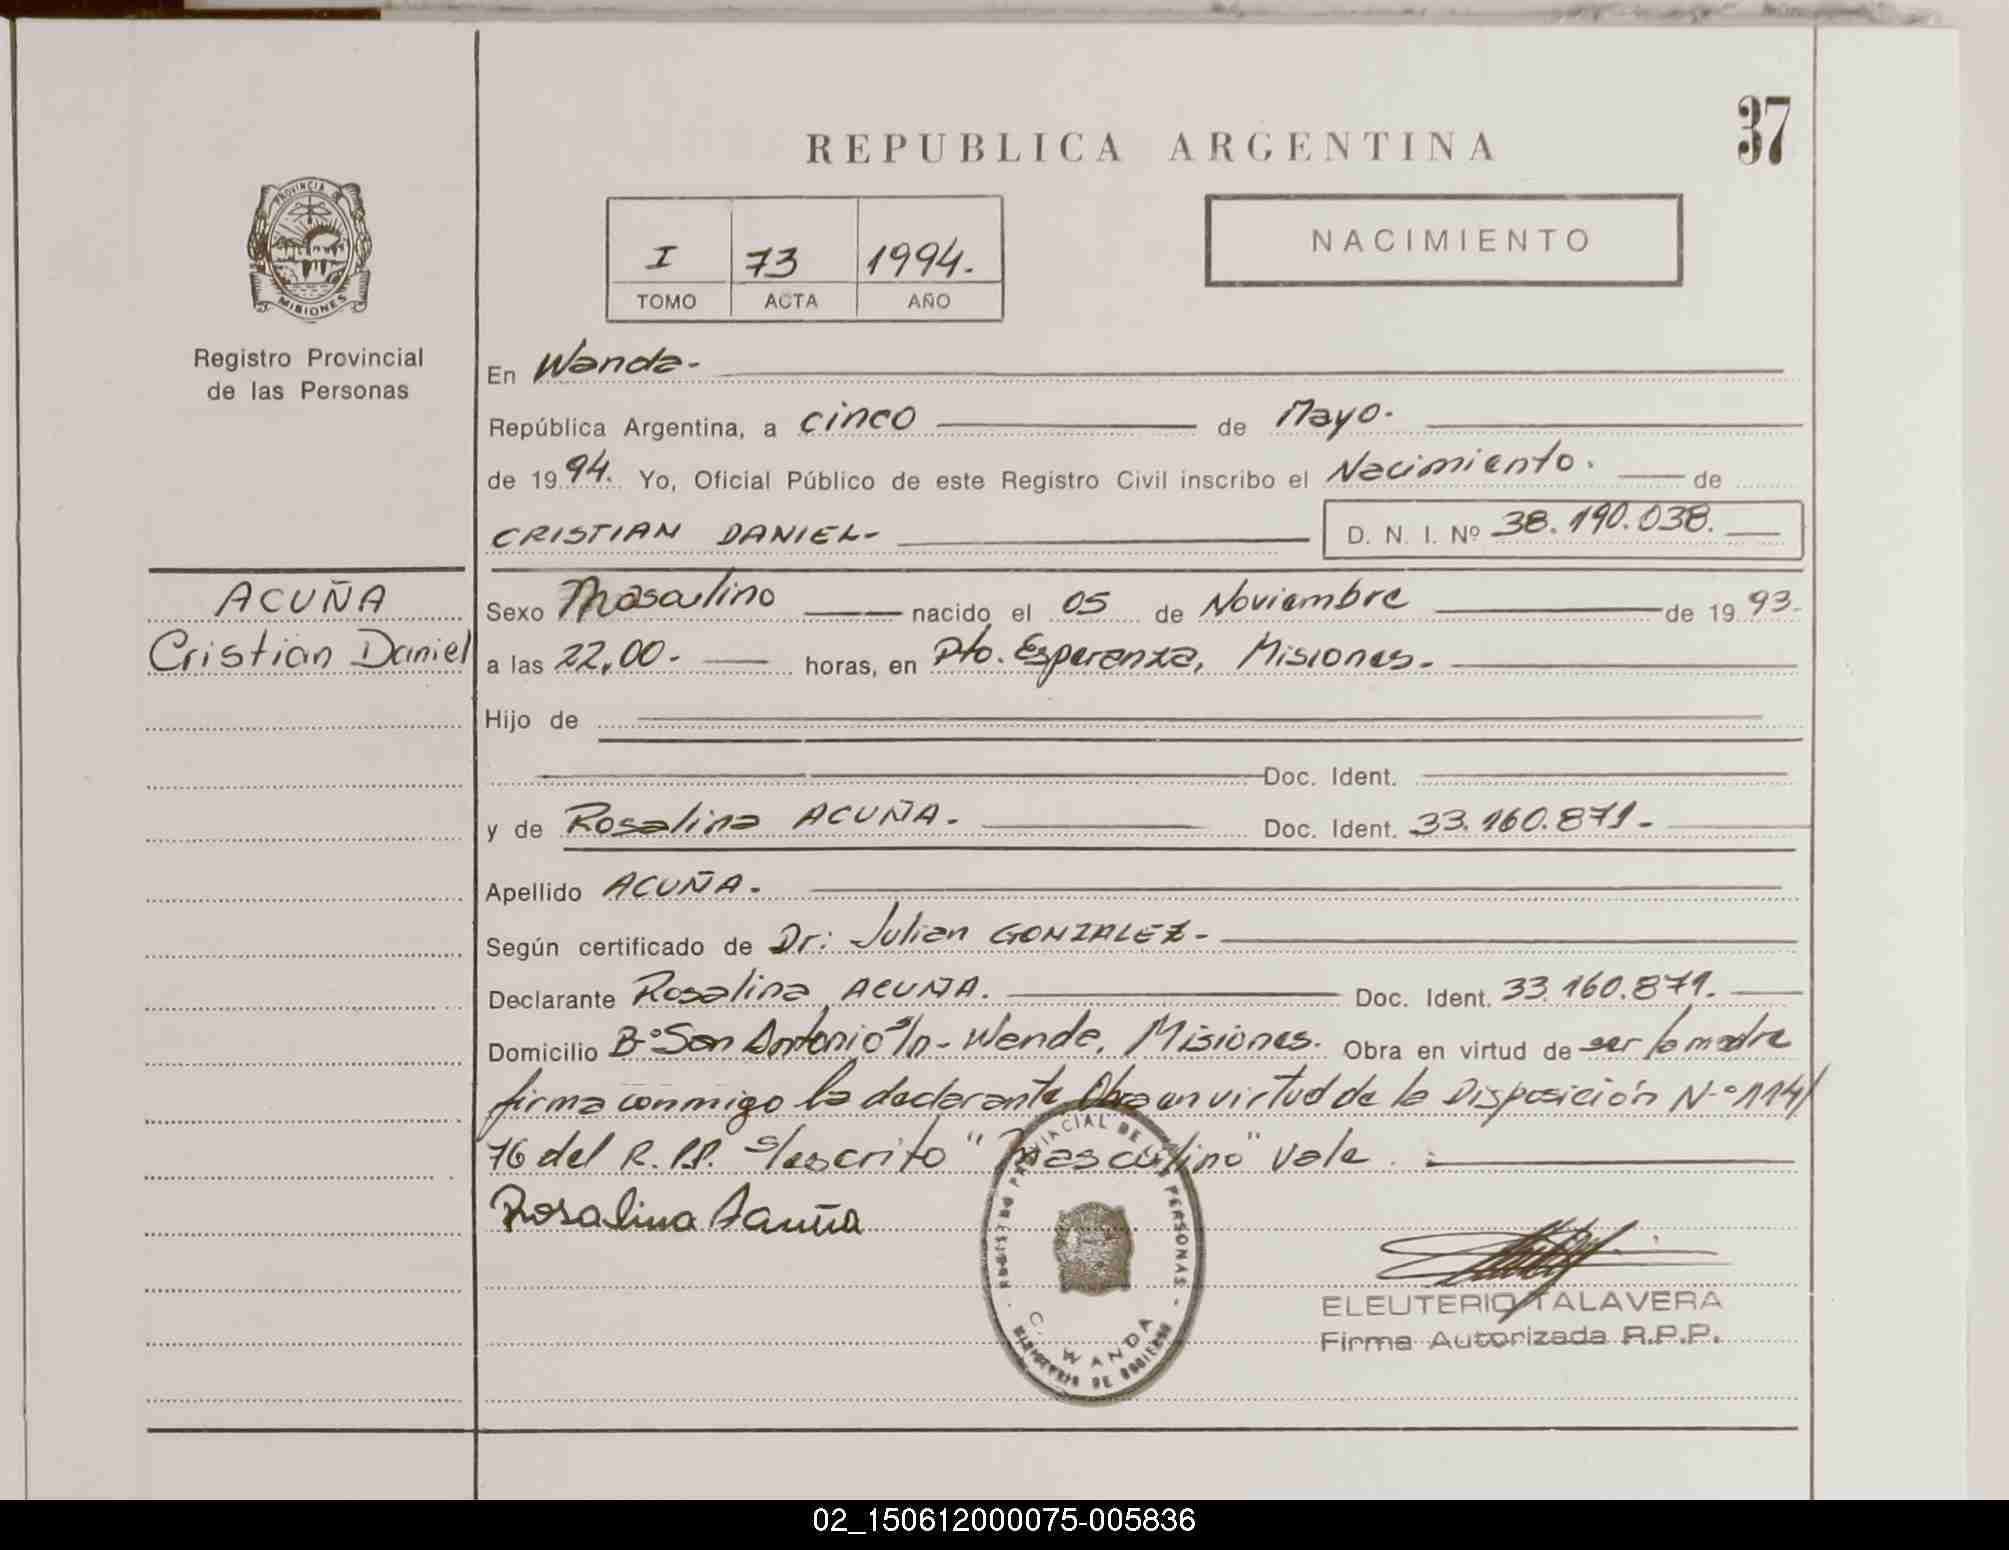 37
REPUBLICA ARGENTINA
NACIMIENTO
PROVINCIA DE MISIONES
I 73 1994.
TOMO ACTA AÑO
Registro Provincial
de las Personas
En Wanda.-
República Argentina, a cinco de Mayo.-
de 19 94. Yo, Oficial Público de este Registro Civil inscribo el Nacimiento. de
CRISTIAN DANIEL- D. N. I. Nº 38.190.038.
ACUÑA
Cristian Daniel
Sexo Masculino nacido el 05 de Noviembre de 19 93.
a las 22,00.- horas, en Pto. Esperanza, Misiones.-
Hijo de
Doc. Ident.
y de Rosalina ACUÑA.- Doc. Ident. 33.160.871.-
Apellido ACUÑA.-
Según certificado de Dr: Julian GONZALEZ-
Declarante Rosalina ACUÑA. Doc. Ident. 33.160.871.
Domicilio Bº San Antonio s/n- Wanda, Misiones. Obra en virtud de ser la madre
firma conmigo la declarante Obra en virtud de la Disposición N-º 114/
76 del R.P.P. s/escrito "Masculino" vale.
Rosalina Acuña
REGISTRO PROVINCIAL DE LAS PERSONAS -
C. WANDA
MINISTERIO DE GOBIERNO
ELEUTERIO TALAVERA
Firma Autorizada R.P.P.
02_150612000075-005836